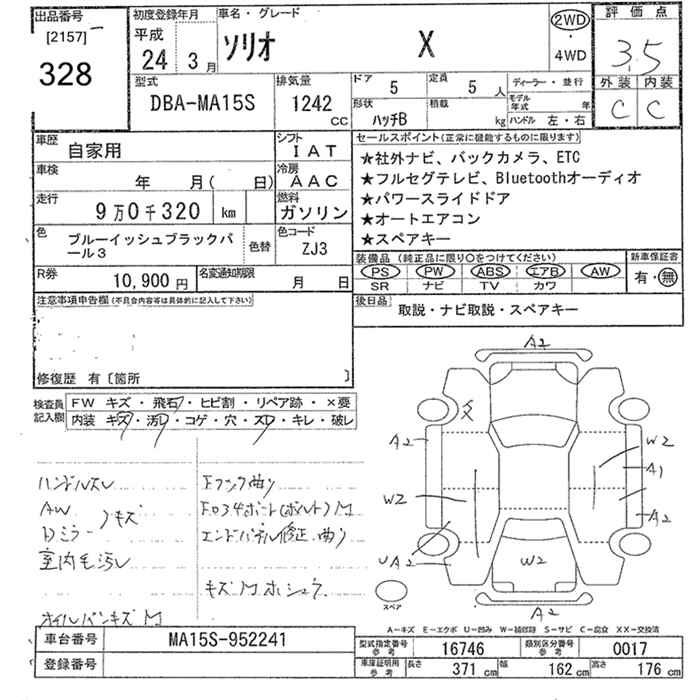 出品番号 初度登録年月 車名・グレード 評価点
[2157] 平成 2WD
328 24年 3月 ソリオ X 4WD 3.5
型式 排気量 ドア 5 定員 5人 ディーラー・並行 外装 内装
DBA-MA15S 1242 cc 形状 ハッチB 積載 kg モデル年式 年 C C
ハンドル 左・右
車歴 自家用 シフト IAT セールスポイント(正常に機能するものに限ります)
車検 年 月( 日) 冷房 AAC ★社外ナビ、バックカメラ、ETC
走行 9万0千320 km 燃料 ガソリン ★フルセグテレビ、Bluetoothオーディオ
★パワースライドドア
★オートエアコン
★スペアキー
色 ブルーイッシュブラックパール3 色替 色コード ZJ3
装備品 (純正品に限り〇をつけてください) 新車保証書
R券 10,900円 名変通知期限 月 日 PS PW ABS エアB AW 有・無
SR ナビ TV カワ
注意事項申告欄(不具合内容等は具体的に記入して下さい) 後日品 取説・ナビ取説・スペアキー
修復歴 有〔箇所 〕
検査員記入欄 FW キズ・飛石・ヒビ割・リペア跡・×要
内装 キズ・汚レ・コゲ・穴・スレ・キレ・破レ
A2
A2 W2
A1
W2 A2
UA2 W2
A2
ハンドルスレ Fフック曲り
AW キズ
Dミラー エンドパネル修正、曲り
室内毛汚レ
オイルパンキズ M
スペア
A-キズ E-エクボ U-凹み W-補修跡 S-サビ C-腐食 XX-交換済
車台番号 MA15S-952241 型式指定番号 参考 16746 類別区分番号 参考 0017
登録番号 車庫証明用 参考 長さ 371 cm 幅 162 cm 高さ 176 cm